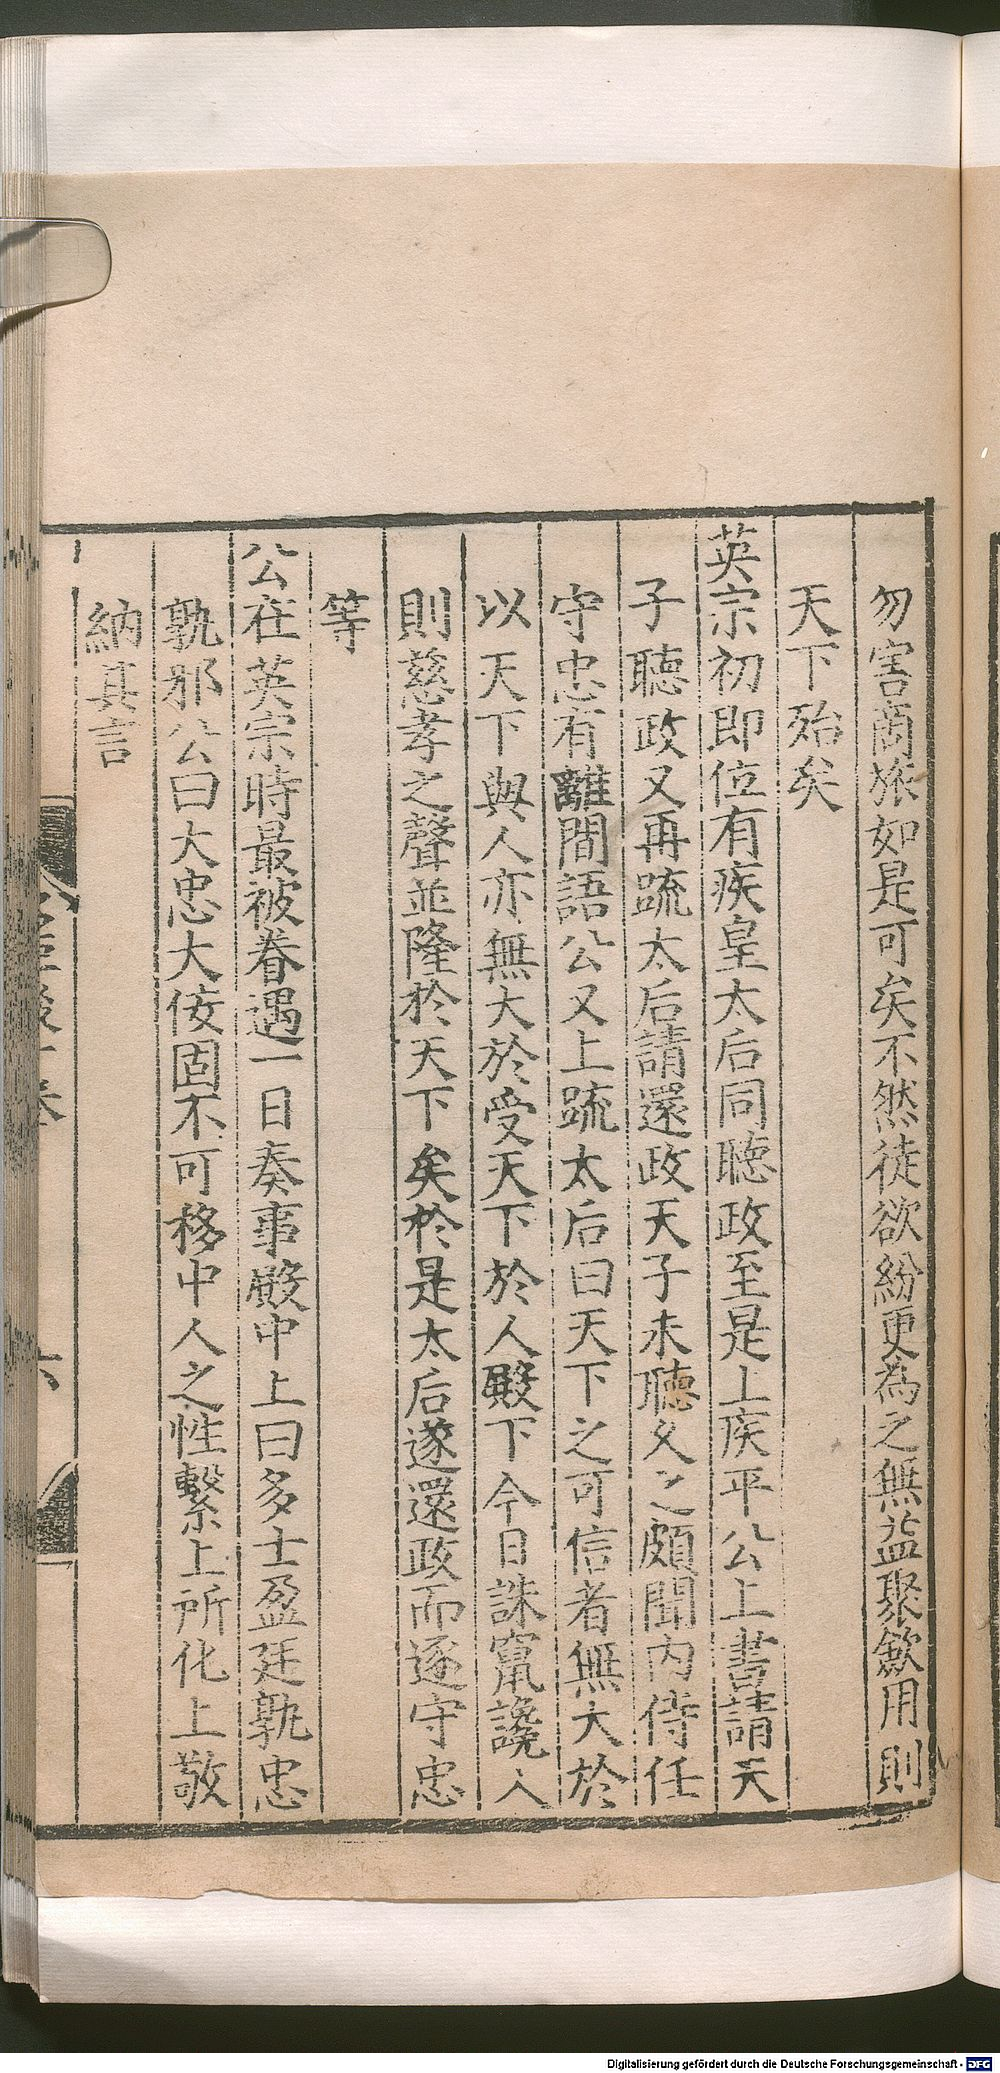 勿害商旅如是可矣不然徒欲紛更為之無益聚斂用則
天下殆矣
英宗初即位有疾皇太后同聽政至是上疾平公上書請天
子聽政又再䟽太后請還政天子未聽久之頗聞内侍任
守忠有離間語公又上䟽太后曰天下之可信者無大於
以天下與人亦無大於受天下於人殿下今日誅竄讒人
則慈孝之聲並隆於天下矣於是太后遂還政而逐守忠
等
公在英宗時最被眷遇一日奏事殿中上曰多士盈廷孰忠
孰邪公曰大忠大佞固不可移中人之性繫上所化上敬
納其言
六
Digitalisierung gefördert durch die Deutsche Forschungsgemeinschaft - DFG